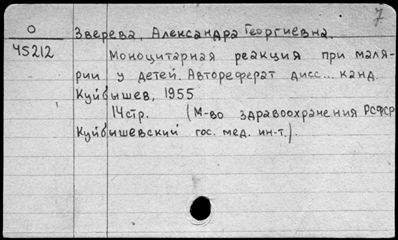 7
О Зверева, Александра Георгиевна.
45212 Моноцитарная реакция при маля-
рии у детей. Автореферат дисс... канд.
Куйбышев, 1955
14стр. (М-во здравоохранения РСФСР
Куйбышевский гос. мед. ин-т.).